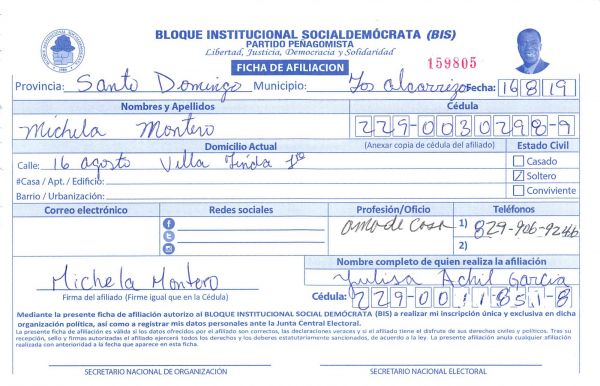 BLOQUE INSTITUCIONAL SOCIALDEMÓCRATA (BIS)
PARTIDO PEÑAGOMISTA
Libertad, Justicia, Democracia y Solidaridad
FICHA DE AFILIACION
159805
Provincia: Santo Domingo Municipio: Los alcarrizo Fecha: 16 8 19
Nombres y Apellidos Cédula
Michela Montero 229-0030298-9
Domicilio Actual (Anexar copia de cédula del afiliado) Estado Civil
Calle: 16 agosto Villa Linda Casado
#Casa / Apt. / Edificio: Soltero
Barrio / Urbanización: Conviviente
Correo electrónico Redes sociales Profesión/Oficio Teléfonos
ama de casa 1) 829-906-9266
2)
Nombre completo de quien realiza la afiliación
Michela Montero Yulisa Garcia
Firma del afiliado (Firme igual que en la Cédula) Cédula: 229-0011851-8
Mediante la presente ficha de afiliación autorizo al BLOQUE INSTITUCIONAL SOCIAL DEMÓCRATA (BIS) a realizar mi inscripción única y exclusiva en dicha
organización política, así como a registrar mis datos personales ante la Junta Central Electoral.
La presente ficha de afiliación es válida si los datos ofrecidos por el afiliado son correctos, las declaraciones veraces y si el afiliado tiene el disfrute de sus derechos civiles y políticos. Tras su
recepción, sello y firmas autorizadas el afiliado ejercerá todos los derechos y los deberes estatutariamente sancionados, de acuerdo a la ley. La presente afiliación anula cualquier afiliación
realizada con anterioridad a la fecha que aparece en esta ficha.
SECRETARIO NACIONAL DE ORGANIZACIÓN SECRETARIO NACIONAL ELECTORAL